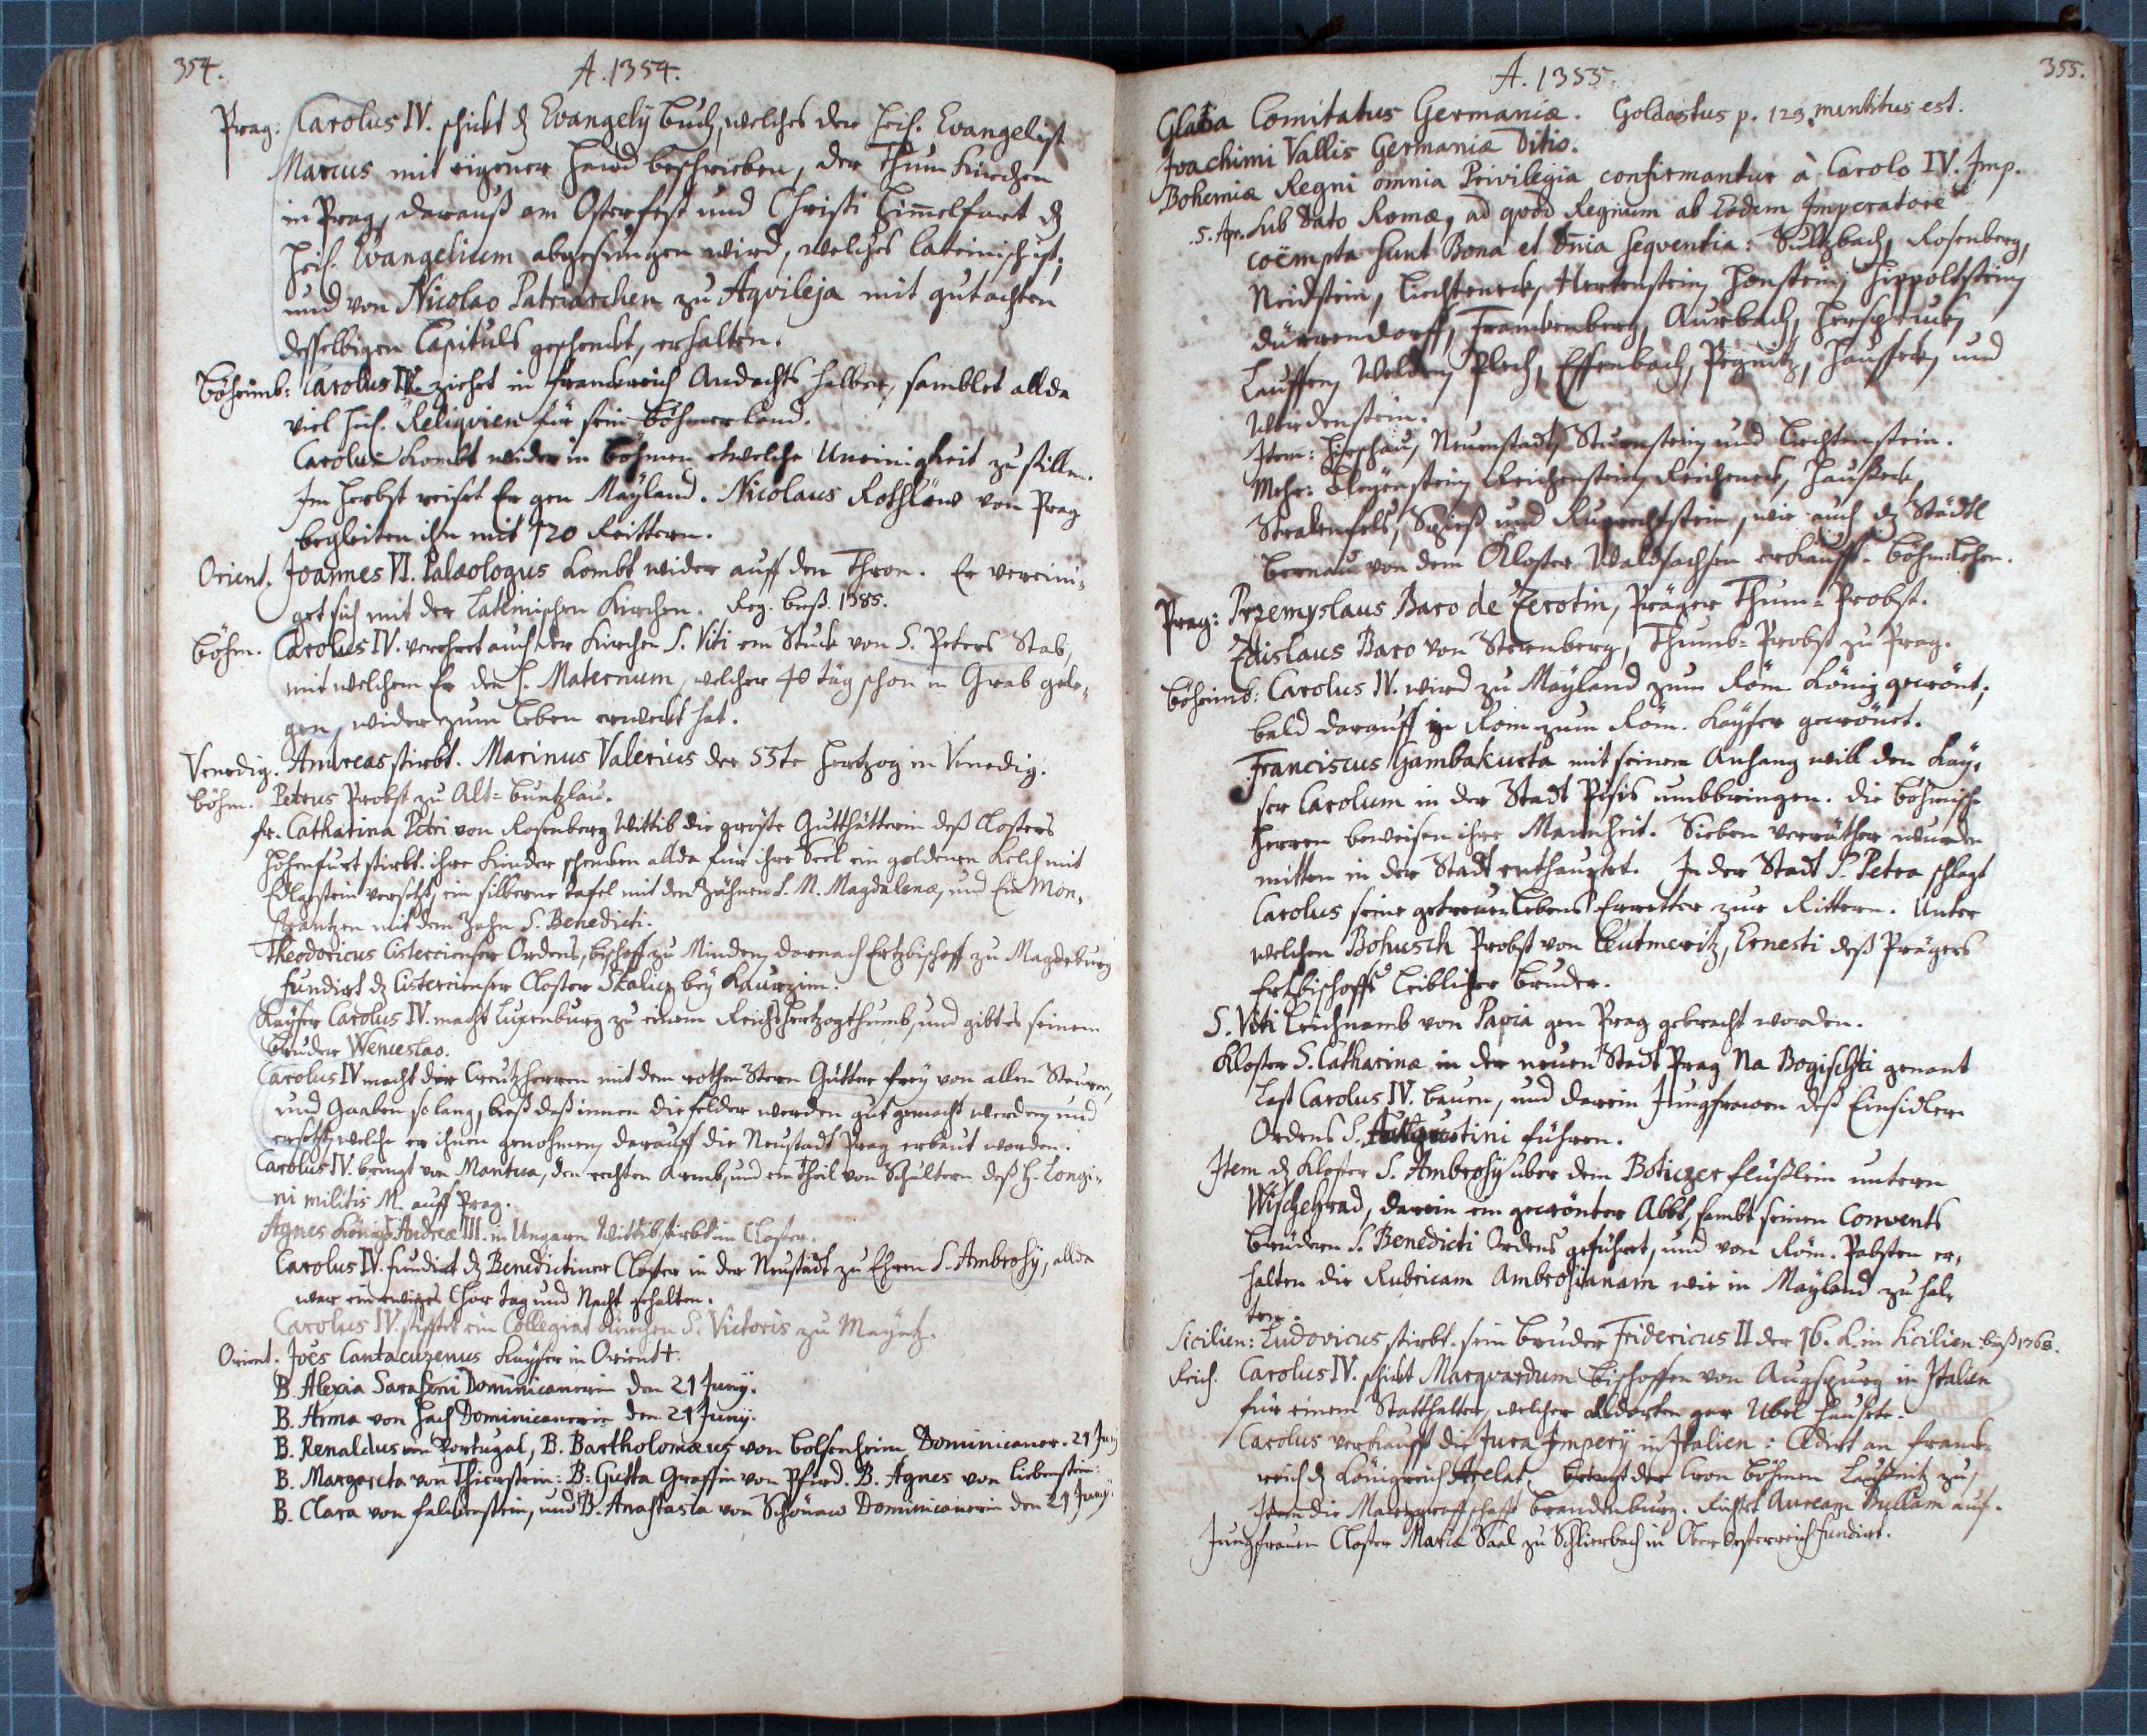 354.
A. 1354.
Prag: Carolus IV. schickt dz Evangely Buch, welches der Heil. Evangelist
Marcus mit eigener Hand beschrieben, der Thum Kirchen
in Prag, darauß am Osterfest und Christi Himmelfart dz
Heil. Evangelium abgesungen wird, welches lateinisch ist,
und von Nicolao Patriarchen zu Aqvileja mit gutachten
desselbigen Capituls geschenckt, erhalten.
Böheimb: Carolus IV. ziehet in Franckreich Andachts halber, samblet allda
viel heil. Reliqvien für sein Böhmerland.
Carolus kombt wider in Böhmen etwelche Uneinigkeit zu stillen.
Im Herbst reiset Er gen Mayland. Nicolaus Rothlöw von Prag
begleiten ihn mit 120 Reittern.
Orient. Joannes VI. Palæologus kombt wider auff den Thron. Er vereini-
get sich mit der Lateinischen Kirchen. Reg. biß. 1385.
Böhm. Carolus IV. verehret auch der Kirchen S. Viti ein Stuck von S. Peters Stab,
mit welchem Er den H. Maternum, welcher 40 täg schon in Grab gele-
gen, wider zum Leben erweckt hat.
Venedig. Andreas stirbt. Marinus Valerius der 55te Hertzog in Venedig.
Böhm. Petrus Probst zu Alt-Buntzlau.
Fr. Catharina Petri von Rosenberg Wittib die gröste Gutthätterin deß Closters
Hohenfurt stirbt. ihre Kinder schencken allda für ihre Seel ein goldenen Kelch mit
Edlgestein versetzt, ein silberne Tafel mit den Zähnen S. M. Magdalenæ, und Ein Mon-
strantzen mit dem Zahn S. Benedicti.
Theodoricus Cistercienser Ordens, Bischoff zu Minden, darnach Ertzbischoff zu Magdeburg
fundirt dz Cistercienser Closter Skaliz bey Kaurzim.
Kayser Carolus IV. macht Luxenburg zu einem Reichs Hertzogthumb, und gibt es seinem
Bruder Wenceslao.
Carolus IV macht die Creutzherren mit dem rothen Stern Gütter frey von allen Steuren,
und Gaaben so lang, biß daß innen die felder werden gut gemacht werden, und
ersetzt, welche er ihnen genohmen, darauff die Neustadt Prag erbaut worden.
Carolus IV. bringt von Mantua, den rechten Armb, und ein Theil von Schultern deß H. Longi-
ni militis M. auff Prag.
Agnes Königs Andreæ III. in Ungarn Wittib stirbt im Closter.
Carolus IV. fundirt dz Benedictiner Closter in der Neustadt zu Ehren S. Ambrosy, allda
war ein ewiges Chor Tag und Nacht gehalten.
Carolus IV. stifftet ein Collegiat Kirchen S. Victoris zu Mayntz.
Orient. Joës Cantacuzenus Kayser in Orient †.
B. Alexia Dominicanerin den 21 Juny.
B. Anna von Hach Dominicanerin den 21 Juny.
B. Renaldus von Portugal, B. Bartholomæus von Bolsenheim Dominicaner. 21 Juny
B. Margareta von Thierstein: B. Gutta Graffin von Pfird. B. Agnes von Liebenstein:
B. Clara von Falckenstein, und B. Anastasia von Schönaw Dominicanerin den 21 Juny.
355.
A. 1355.
Glatia Comitatus Germaniæ. Goldastus p. 123. mentitus est.
Joachimi Vallis Germaniæ Ditio.
Bohemiæ Regni omnia Privilegia confirmantur à Carolo IV. Imp.
5. Apr. sub Dato Romæ, ad quod Regnum ab Eodem Imperatore
coëmpta sunt Bona et Dnia seqventia: Sultzbach, Rosenberg,
Neidstein, Liechteneck, Hertenstein, Honstein, Hippoltstein,
Dürrendorff, Franckenberg, Aurbach, Herspruck,
Lauffen, Welden, Plech, Essenbach, Pegnitz, Hausseck, und
Werdenstein.
Item: Hirschau, Neuenstadt, Sturnstein, und Liechtenstein.
Mehr: Bleyenstein, Reichenstein, Reicheneck, Hauseck,
Stralenfels, Spieß und Ruprechtstein, wie auch dz Städtl
Bernau von dem Kloster Waldsachsen erkaufft. Böhm: Lehen.
Prag: Przemyslaus Baro de Zerotin, Präger Thum-Probst.
Zdislaus Baro von Sternberg, Thumb-Probst zu Prag.
Böheimb: Carolus IV. wird zu Mayland zum Röm König gecrönt,
bald darauff in Rom zum Röm. Kayser gecrönet.
Franciscus Gambakurta mit seinem Anhang will den Kay-
ser Carolum in der Stadt Pisis umbbringen. die Böhmische
Herren beweisen ihre Mannheit. Sieben verräther wurden
mitten in der Stadt enthauptet. In der Stadt S. Petra schlagt
Carolus seine getreuen Lebens Erretter zur Rittern. Unter
welchen Bohusch Probst von Leutmeritz, Ernesti deß Prägers
Ertzbischoffs leiblicher Bruder.
S. Viti Leichnamb von Papia gen Prag gebracht worden.
Kloster S. Catharinæ in der neuen Stadt Prag Na Bogischti genant
Last Carolus IV. bauen, und darein Jungfrawen deß Einsidler
Ordens S. Augustini führen.
Item dz Kloster S. Ambrosy uber dem Boticzer flüßlein untern
Wischehrad, darein ein gecrönter Abbt, sambt seinen Convents
Brüdern S. Benedicti Ordens geführet, und von Röm. Pabsten er-
halten die Rubricam Ambrosianam wie in Mayland zu hal-
ten.
Sicilien: Ludovicus stirbt. sein Bruder Fridericus II der 16. K. in Sicilien. biß 1368.
Reich. Carolus IV. schickt Marqvardum Bischoffen von Augspurg in Italien
für einem Statthalter, welcher alldorten gar Ubel hausete.
Carolus verkaufft die Jura Impery in Italien: Cedirt an Franck-
reich dz Königreich Arelat. bringt der Cron Böhmen Laußnitz zu,
Item die Marggraffschafft Brandenburg. Richtet Auream Bullam auf.
Jungfrauen Closter Mariæ Saal zu Schlierbach in Oberoesterreich fundirt.